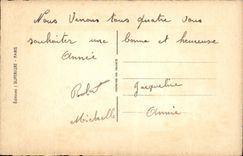 Nous Venons tous quatre vous
souhaiter une bonne et heureuse
Année
Robert Jacqueline
Michelle Annie
Editions "SUPERLUXE" - PARIS